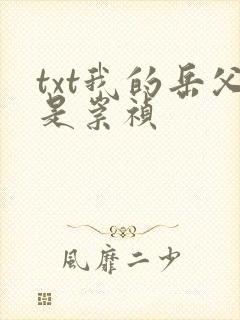 txt我的岳父
是崇禎
風靡二少